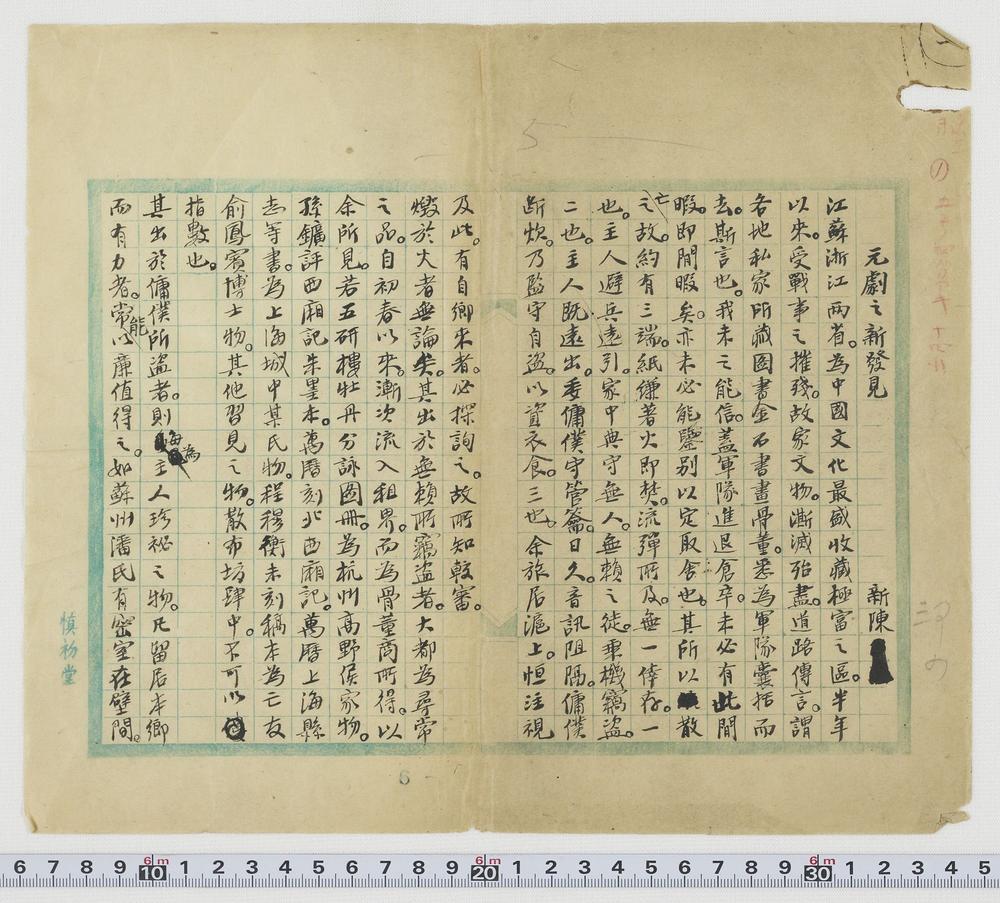 元劇之新發見
新陳
江蘇浙江兩省。為中國文化最盛收藏極富之區。半年
以來。受戰事之摧殘。故家文物。澌滅殆盡。道路傳言。謂
各地私家所藏圖書金石書畫骨董。悉為軍隊囊括而
去。斯言也。我未之能信。蓋軍隊進退倉卒。未必有此閒
暇。即閒暇矣。亦未必能鑒別以定取舍也。其所以散
亡之故。約有三端。紙縑著火即焚。流彈所及。無一倖存。一
也。主人避兵遠引。家中典守無人。無賴之徒。乘機竊盜。
二也。主人既遠出。委傭僕守管籥。日久。音訊阻隔。傭僕
斷炊。乃監守自盜。以資衣食。三也。余旅居滬上。恒注視
及此。有自鄉來者。必探詢之。故所知較審。
燬於火者無論矣。其出於無賴所竊盜者。大都為尋常
之品。自初春以來。漸次流入租界。而為骨董商所得。以
余所見。若五研樓牡丹分詠圖冊。為杭州高野侯家物。
孫鑛評西廂記朱墨本。萬曆刻北西廂記。萬曆上海縣
志等書。為上海城中某氏物。程穆衡未刻稿本為亡友
俞鳳賓博士物。其他習見之物。散布坊肆中。不可以
指數也。
其出於傭僕所盜者。則每為主人珍祕之物。凡留居本鄉
而有力者。常能以廉值得之。如蘇州潘氏有密室在壁間。
慎初堂
5
6
6 7 8 9 10 1 2 3 4 5 6 7 8 9 20 1 2 3 4 5 6 7 8 9 30 1 2 3 4 5